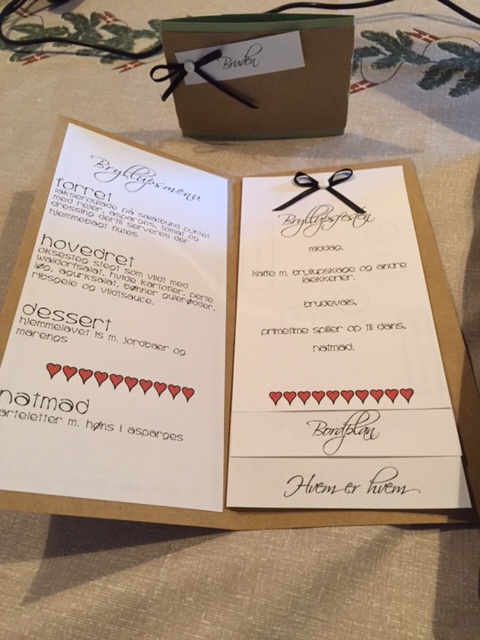 Bruden
Bryllupsmenu
forret
lakseroulade på salatbund pyntet
med rejer, asparges, tomat og
dressing dertil serveres der
hjemmebagt flutes.
hovedret
oksesteg stegt som vildt med
waldorfsalat, hvide kartofler, perle
løg, agurksalat, bønner gulerødder,
ribsgele og vildtsauce.
dessert
hjemmelavet is m. jordbær og
marengs
natmad
arteletter m. høns i asparges
Bryllupsfesten
middag.
kaffe m. bryllupskage og andre
lækkerier.
brudevals.
primetime spiller op til dans.
natmad.
Bordplan
Hvem er hvem